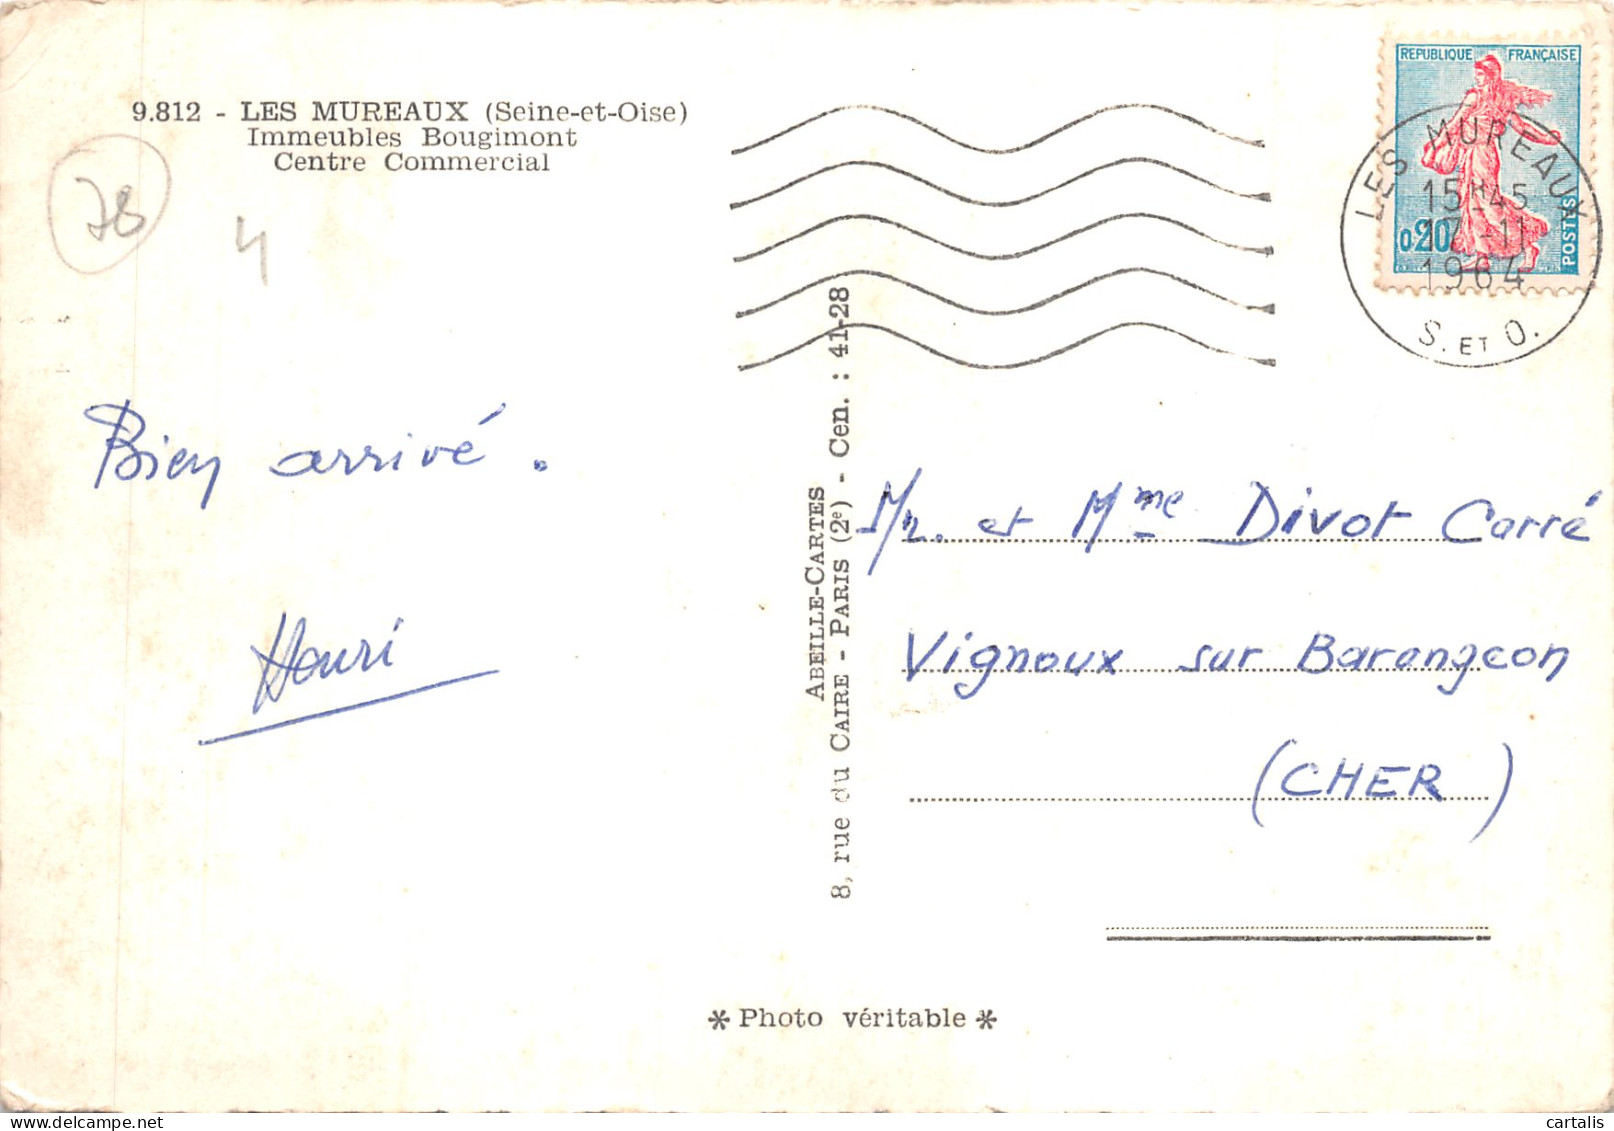 9.812 - LES MUREAUX (Seine-et-Oise)
Immeubles Bougimont
Centre Commercial
78
4
REPUBLIQUE FRANÇAISE
0,20
POSTES
LES MUREAUX
15H45
17-11
1964
S. ET O.
Bien arrivé.
Henri
ABEILLE-CARTES
8, rue du CAIRE - PARIS (2e) - Cen. : 41-28
Mr. et Mme Divot Carré
Vignoux sur Barangeon
(CHER)
* Photo véritable *
cartalis